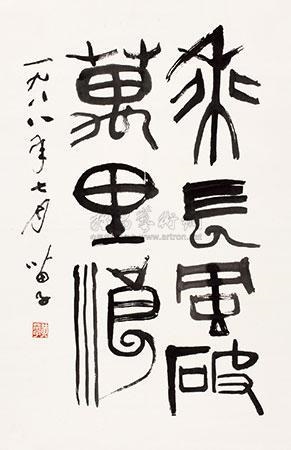 乘長風破
萬里浪
一九八八年七月 苗子
雅昌藝術網
www.artron.net